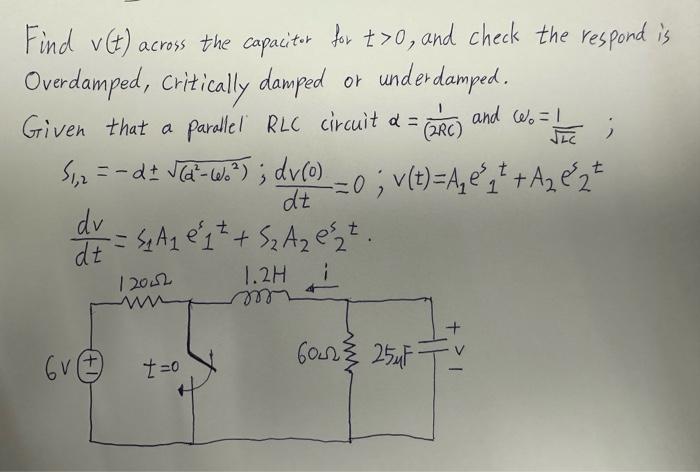 Find v(t) across the capacitor for t>0, and check the respond is
Overdamped, Critically damped or underdamped.
Given that a parallel RLC circuit α = 1/(2RC) and ω₀ = 1/√LC ;
S₁,₂ = -α ± √(α²-ω₀²) ; dv(0)/dt = 0 ; v(t)=A₁e^s₁t + A₂e^s₂t
dv/dt = S₁A₁e^s₁t + S₂A₂e^s₂t .
120Ω 1.2H i
6V + - t=0 60Ω 25μF + v -